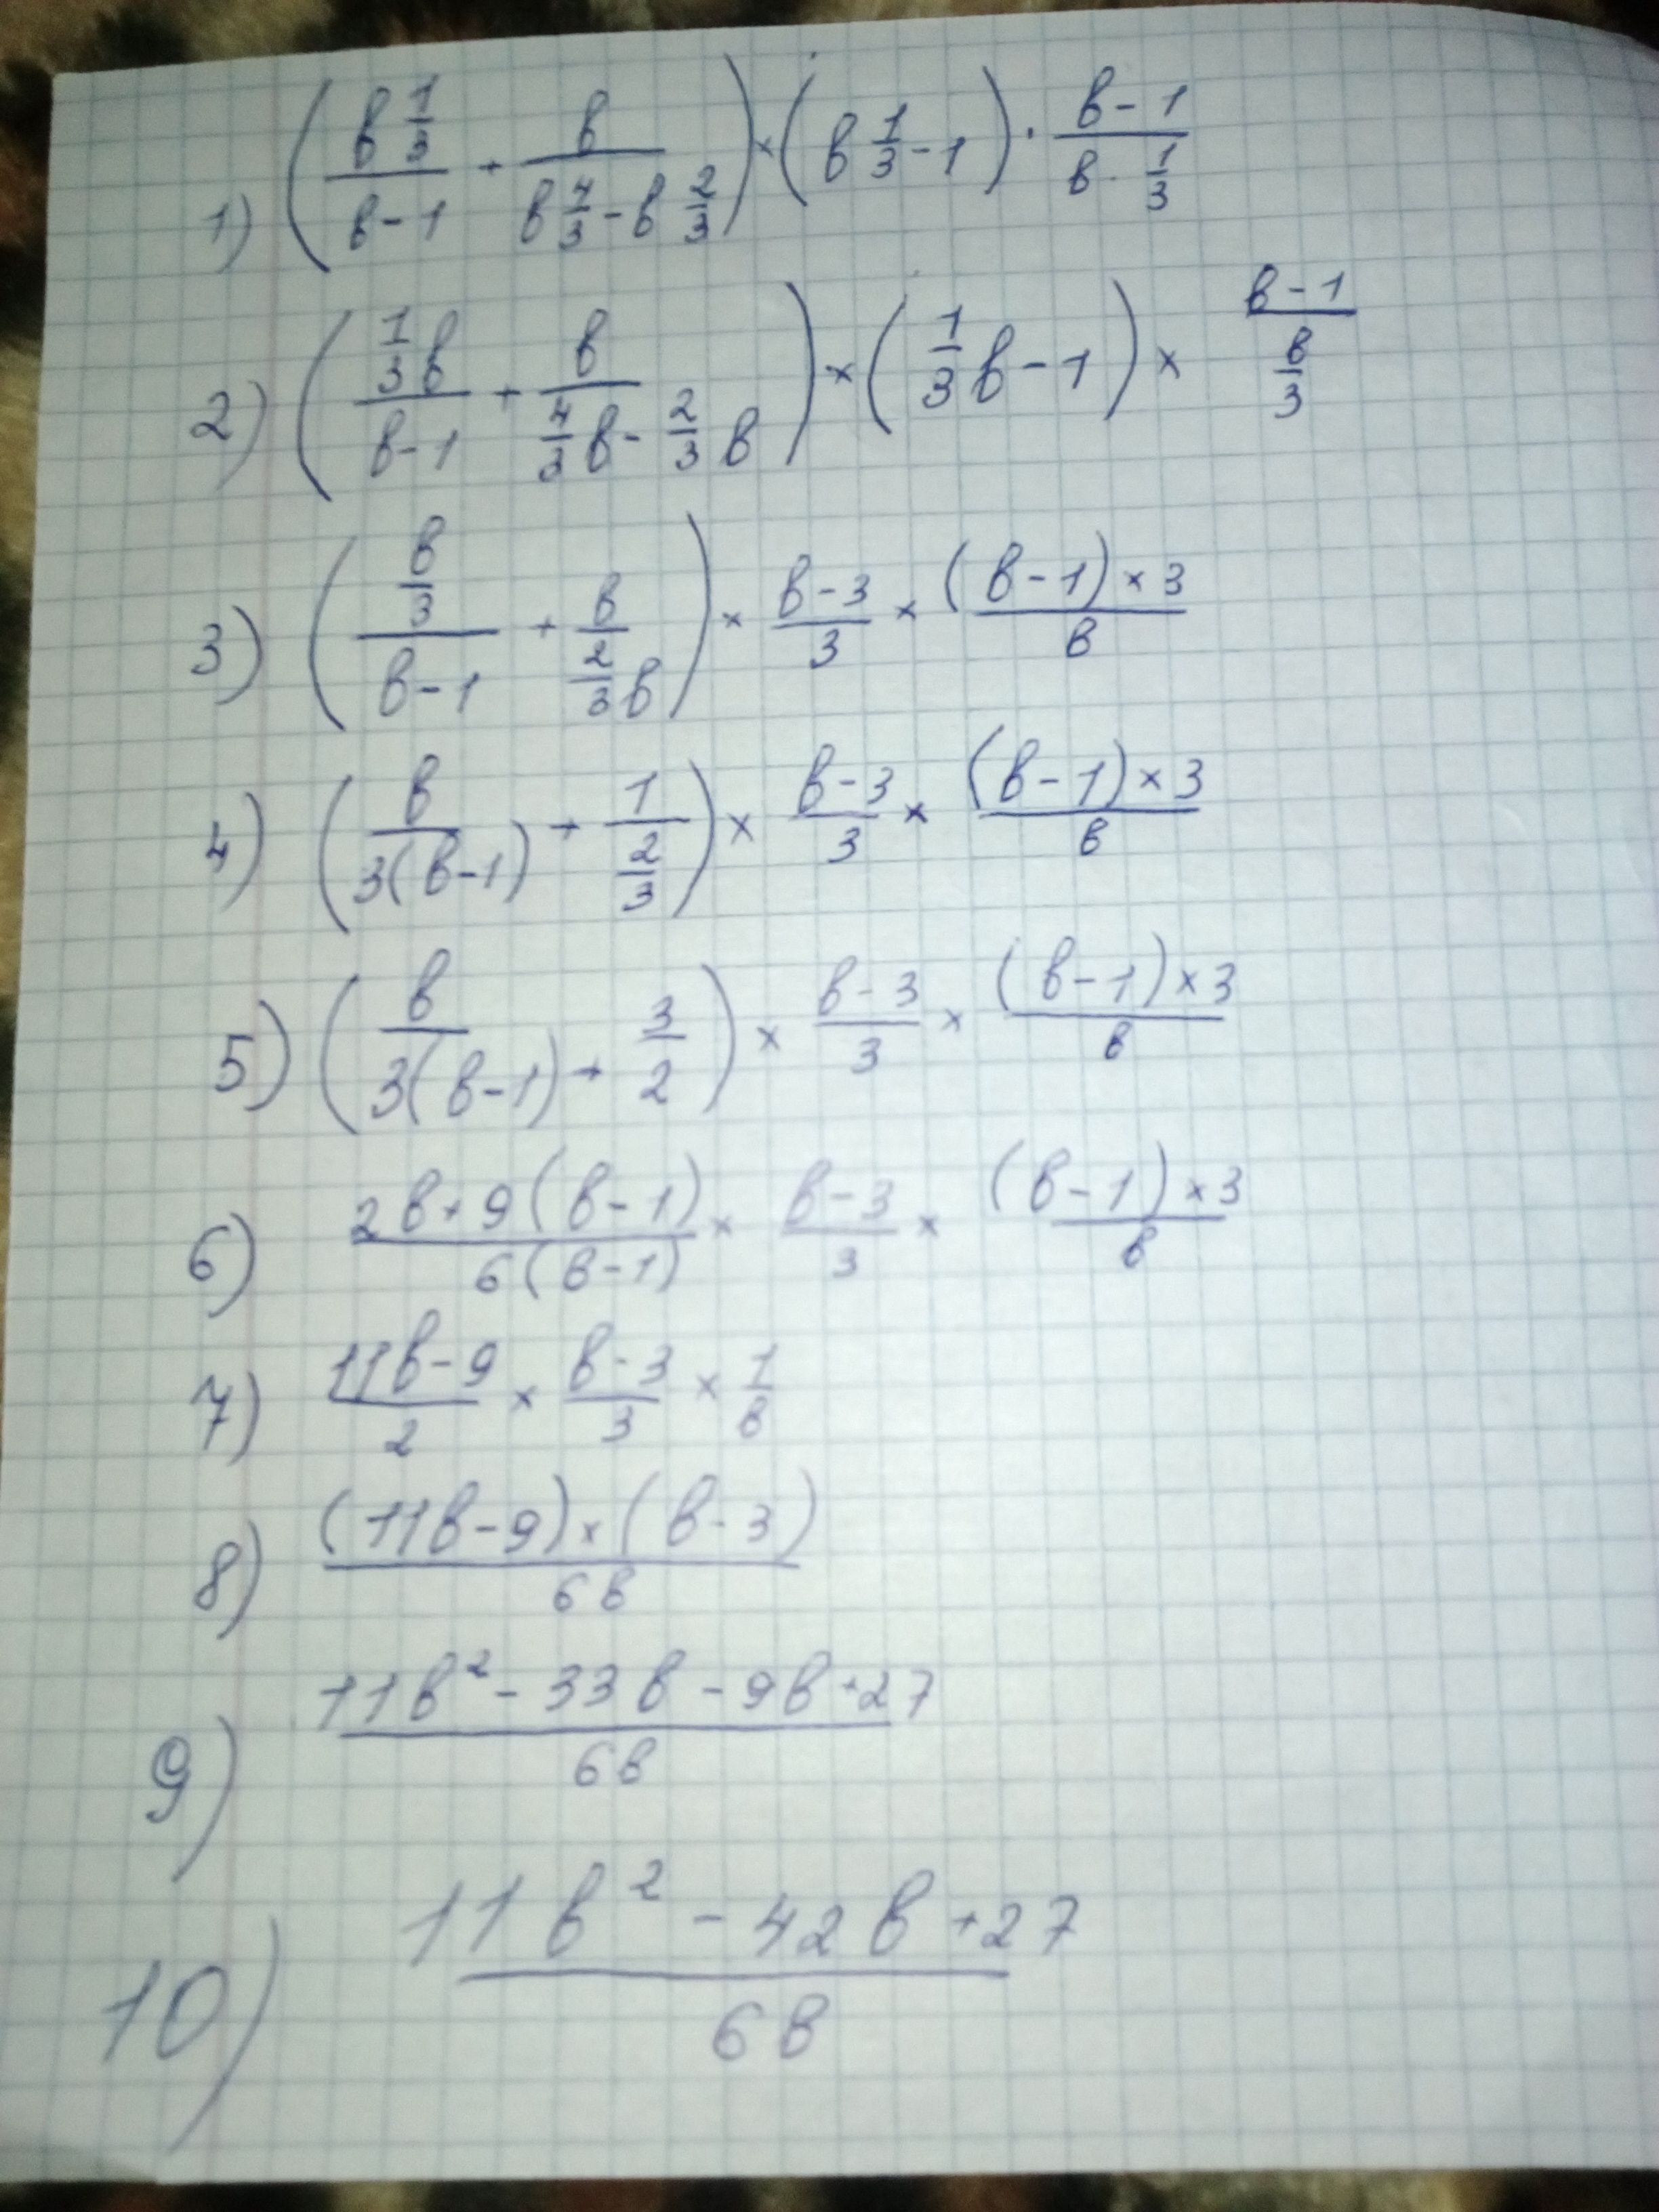 1) (в 1/3 / в-1 + в / в 4/3 - в 2/3) × (в 1/3 - 1) · в-1 / в · 1/3
2) (1/3 в / в-1 + в / 4/3 в - 2/3 в) × (1/3 в - 1) × в-1 / в/3
3) (в/3 / в-1 + в / 2/3 в) × в-3 / 3 × (в-1)×3 / в
4) (в / 3(в-1) + 1 / 2/3) × в-3 / 3 × (в-1)×3 / в
5) (в / 3(в-1) + 3/2) × в-3 / 3 × (в-1)×3 / в
6) 2в+9(в-1) / 6(в-1) × в-3 / 3 × (в-1)×3 / в
7) 11в-9 / 2 × в-3 / 3 × 1/в
8) (11в-9)×(в-3) / 6в
9) 11в² - 33в - 9в + 27 / 6в
10) 11в² - 42в + 27 / 6в